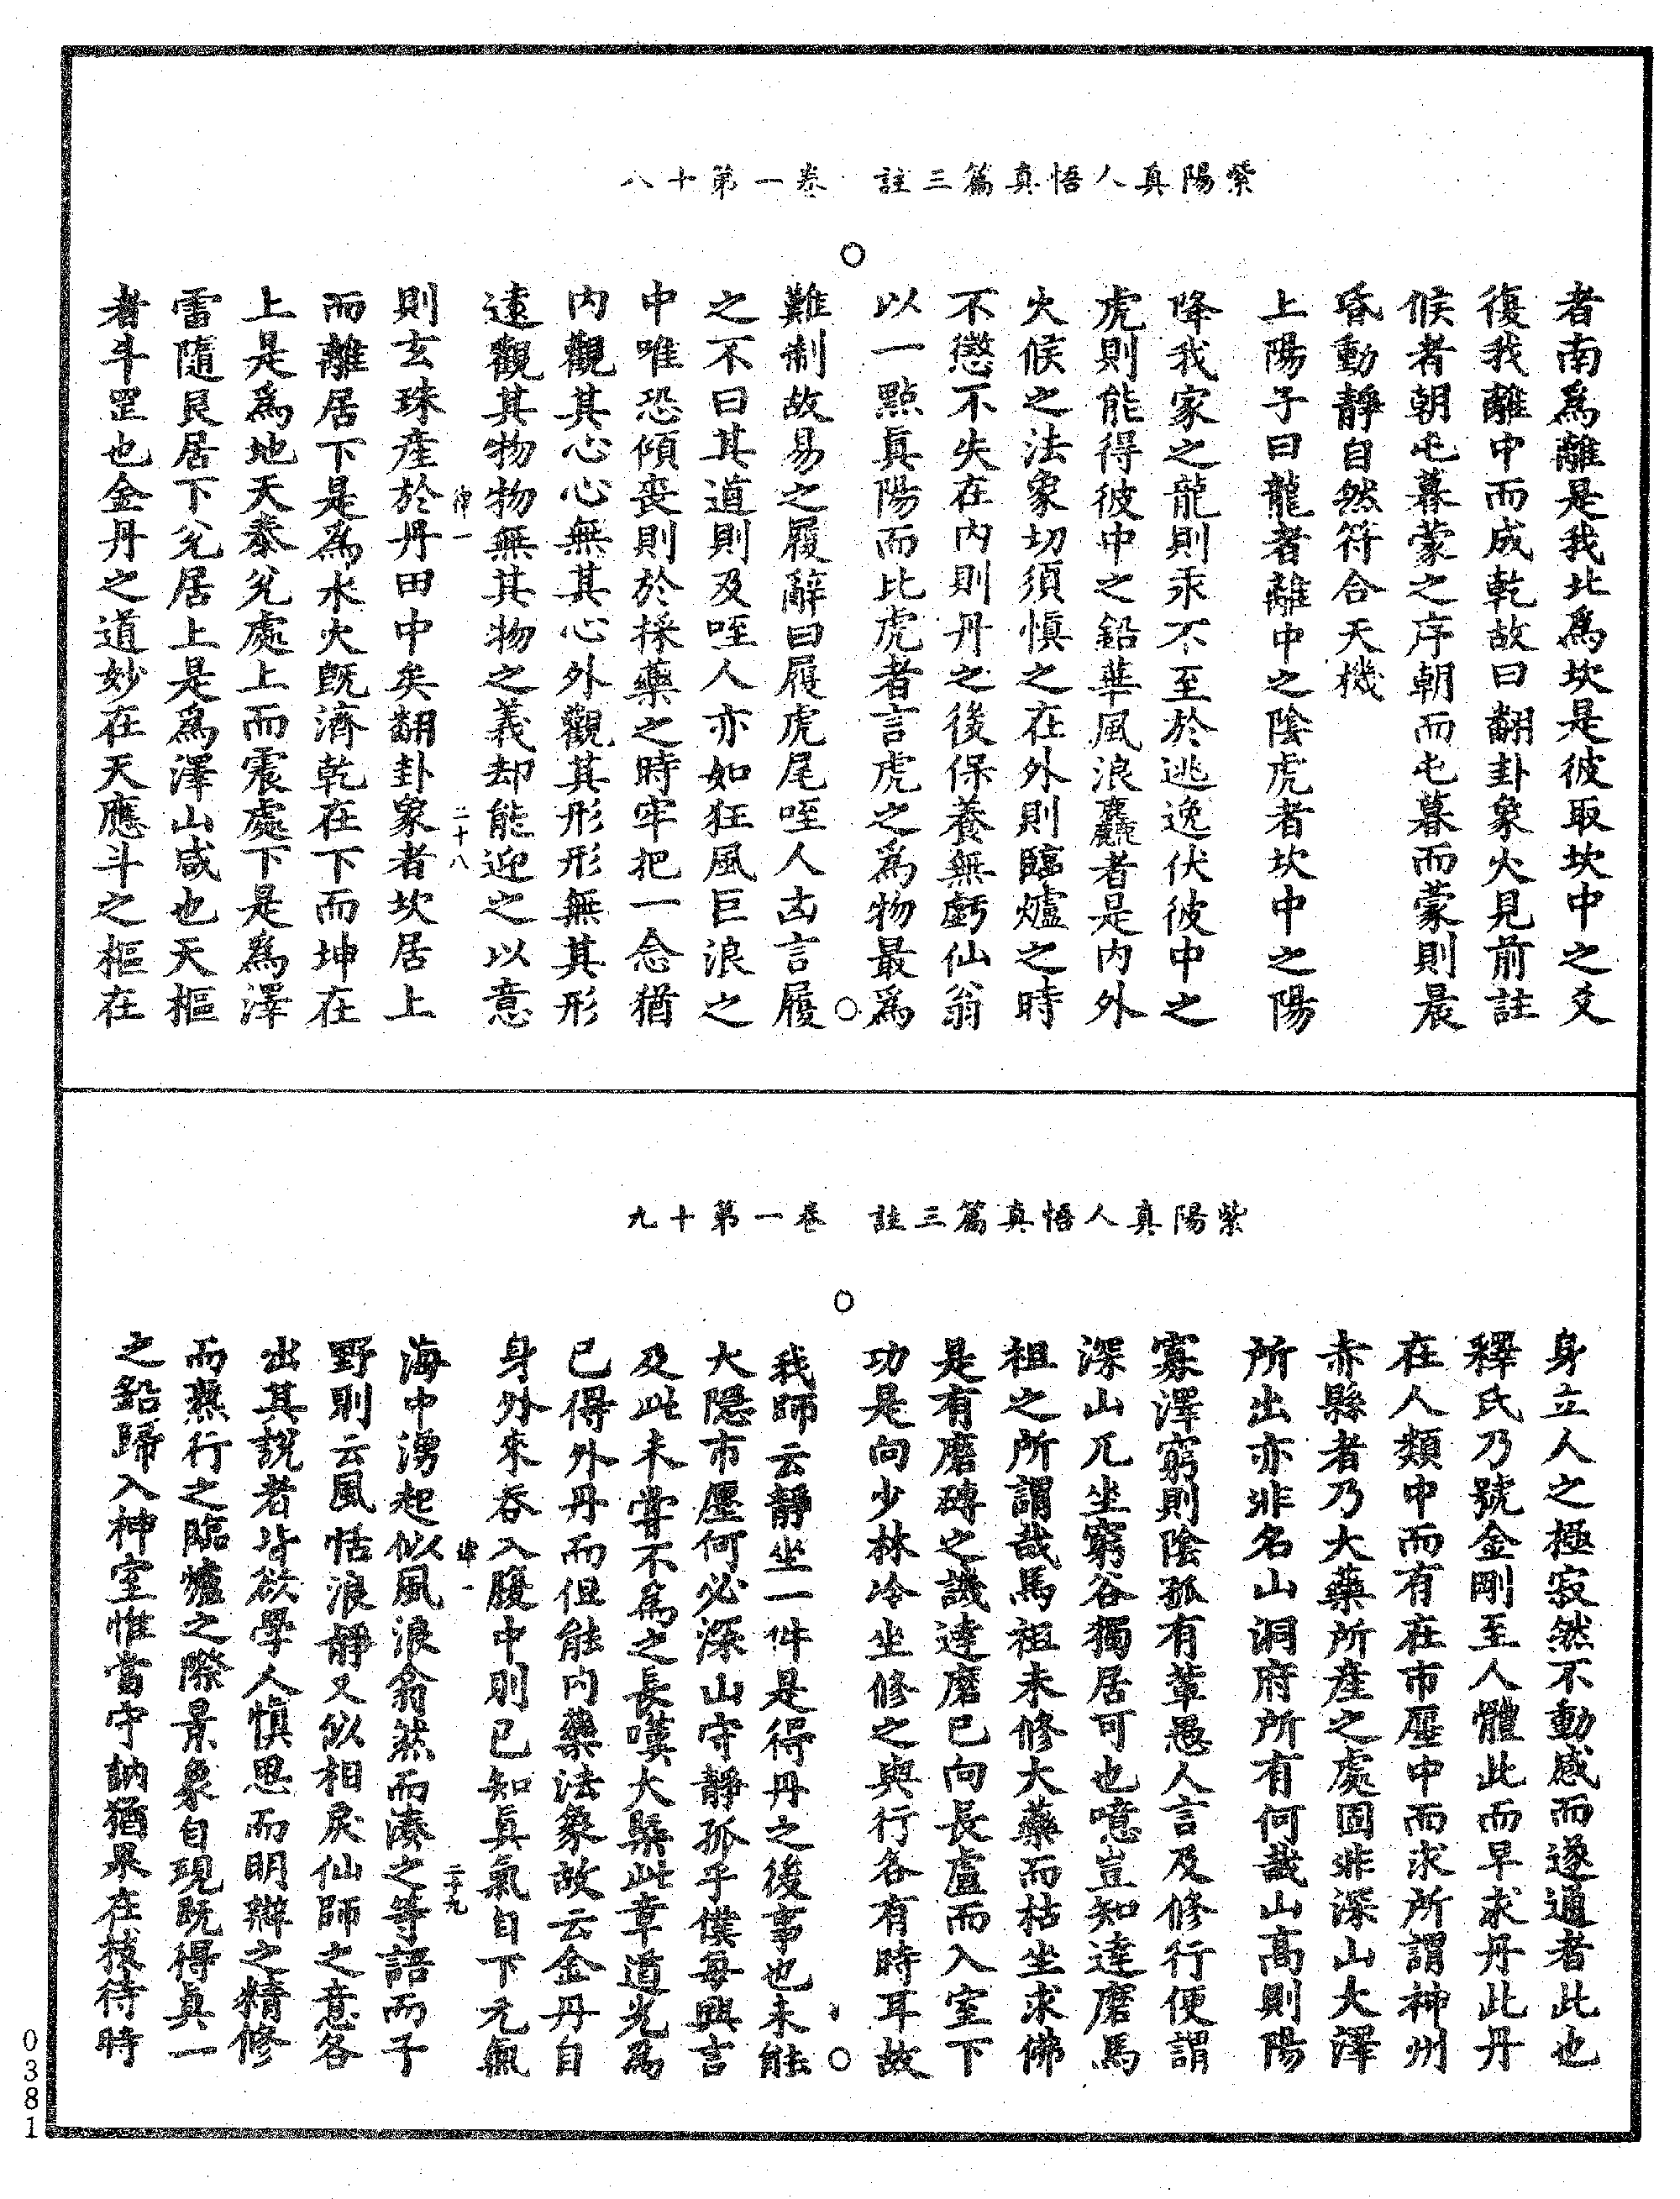 紫陽真人悟真篇三註　卷一第十八
者南爲離是我北爲坎是彼取坎中之爻
復我離中而成乾故曰翻卦象火見前註
候者朝屯暮蒙之序朝而屯暮而蒙則晨
昏動靜自然符合天機
上陽子曰龍者離中之陰虎者坎中之陽
降我家之龍則汞不至於逃逸伏彼中之
虎則能得彼中之鉛華風浪麤者是内外
火候之法象切須慎之在外則臨爐之時
不懲不失在内則丹之後保養無虧仙翁
以一點真陽而比虎者言虎之爲物最爲
難制故易之履辭曰履虎尾咥人凶言履
之不曰其道則及咥人亦如狂風巨浪之
中唯恐傾喪則於採藥之時牢把一念猶
内觀其心心無其心外觀其形形無其形
遠觀其物物無其物之義却能迎之以意
律一　二十八
則玄珠產於丹田中矣翻卦象者坎居上
而離居下是爲水火既濟乾在下而坤在
上是爲地天泰兌處上而震處下是爲澤
雷隨艮居下兌居上是爲澤山咸也天樞
者斗罡也金丹之道妙在天應斗之樞在
紫陽真人悟真篇三註　卷一第十九
身立人之極寂然不動感而遂通者此也
釋氏乃號金剛至人體此而早求丹此丹
在人類中而有在市廛中而求所謂神州
赤縣者乃大藥所產之處固非深山大澤
所出亦非名山洞府所有何哉山高則陽
寡澤窮則陰孤有輩愚人言及修行便謂
深山兀坐窮谷獨居可也噫豈知達磨馬
祖之所謂哉馬祖未修大藥而枯坐求佛
是有磨磚之譏達磨已向長蘆而入室下
功是向少林冷坐修之與行各有時耳故
我師云靜坐一件是得丹之後事也未能
大隱市廛何必深山守靜孤乎僕每興言
及此未嘗不爲之長嘆大槩此章道光爲
已得外丹而但能内藥法象故云金丹自
身外來吞入腹中則已知真氣自下元氣
律一　二十九
海中湧起似風浪翕然而湊之等語而子
野則云風恬浪靜又似相戾仙師之意各
出其說者皆欲學人慎思而明辯之精修
而燕行之臨爐之際景象自現既得真一
之鉛歸入神室惟當守訥猶果在枝待時
0381